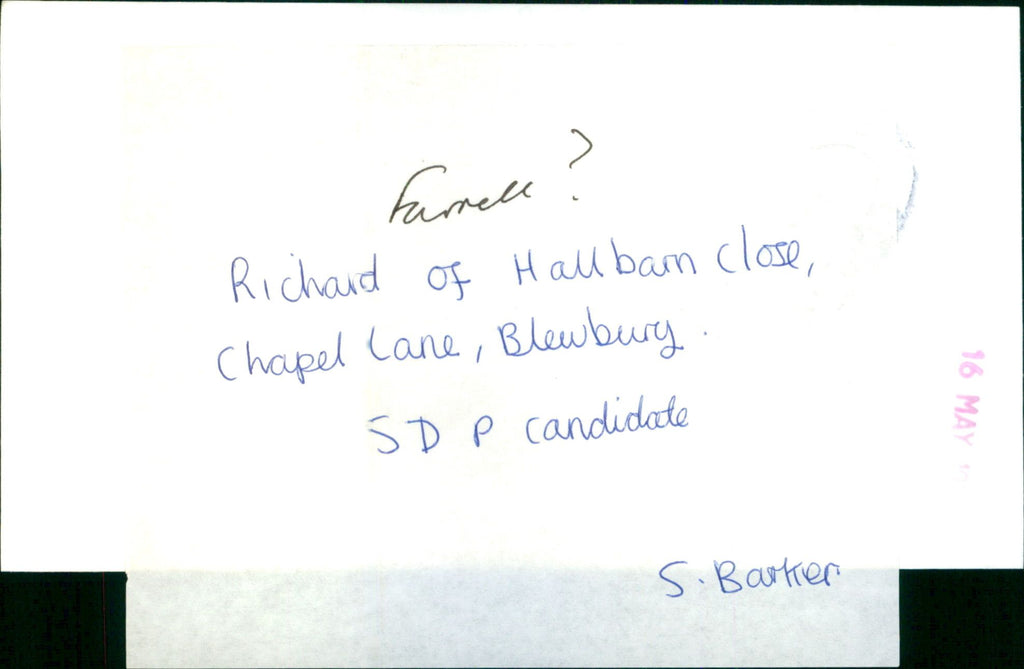 Farrell ?
Richard of Hallbarn Close,
Chapel Lane, Blewbury.
SDP candidate
16 MAY
S. Barker